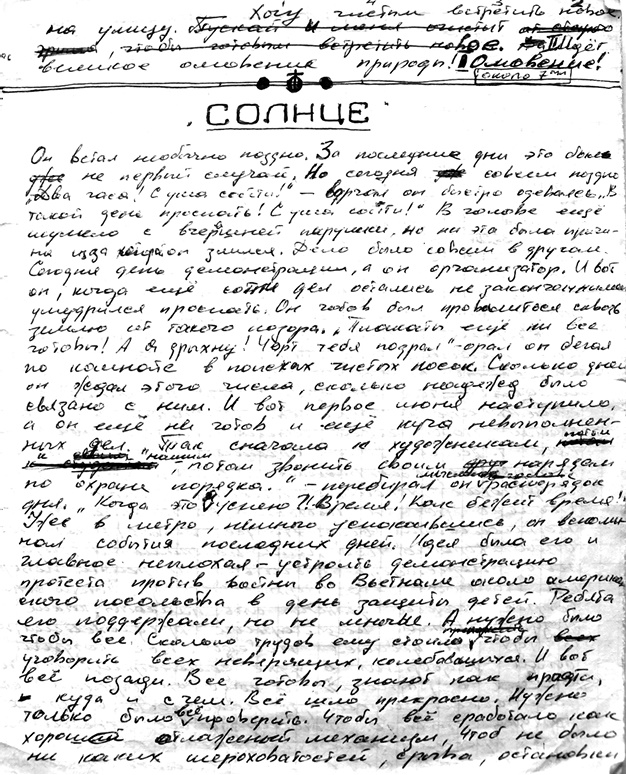 Хочу чистым встретить новое
на улицу. Пускай и меня очистит от старого
, чтобы готовым встретить новое. Идёт
великое омовение природы! Омовение!
около 7
СОЛНЦЕ
Он встал необычно поздно. За последние дни это было
уже не первый случай. Но сегодня совсем поздно
"два часа! С ума сойти!" – ворчал он быстро одеваясь. "В
такой день проспать! С ума сойти!" В голове ещё
шумело с вчерашней пирушки, но ни эта была причи-
на из за которой он злился. Дело было совсем в другом.
Сегодня день демонстрации, а он организатор. И вот
он, когда ещё сотни дел остались не законченными
умудрился проспать. Он готов был провалиться сквозь
землю от такого позора. "Плакаты ещё ни все
готовы! А я дрыхну! Чорт тебя подрал" – орал он бегая
по комнате в поисках чистых носок. Сколько дней
он ждал этого числа, сколько надежд было
связано с ним. И вот первое июня наступило,
а он ещё не готов и ещё куча невыполнен-
ных дел. "Так сначала к художникам, потом
к нашим, потом звонить своим нарядам
по охране порядка." – перебирал он мысленно распорядок
дня. "Когда это я успею?! Время! Как бежит время!"
Уже в метро, немного успокоившись, он вспоми-
нал события последних дней. Идея была его и
главное неплохая – устроить демонстрацию
протеста против войны во Вьетнаме около америкас-
кого посольства в день защиты детей. Ребята
его поддержали, но не многие. А нужно было
чтобы все. Сколько трудов ему стоило чтобы
уговорить всех неверящих, колебавшихся. И вот
всё позади. Все готовы, знают как пройти,
куда и с чем. Всё шло прекрасно. Нужно
только было всё проверить. Чтобы всё сработало как
хорошо отлаженный механизм, чтоб не было
ни каких шероховатостей, срыва, остановки